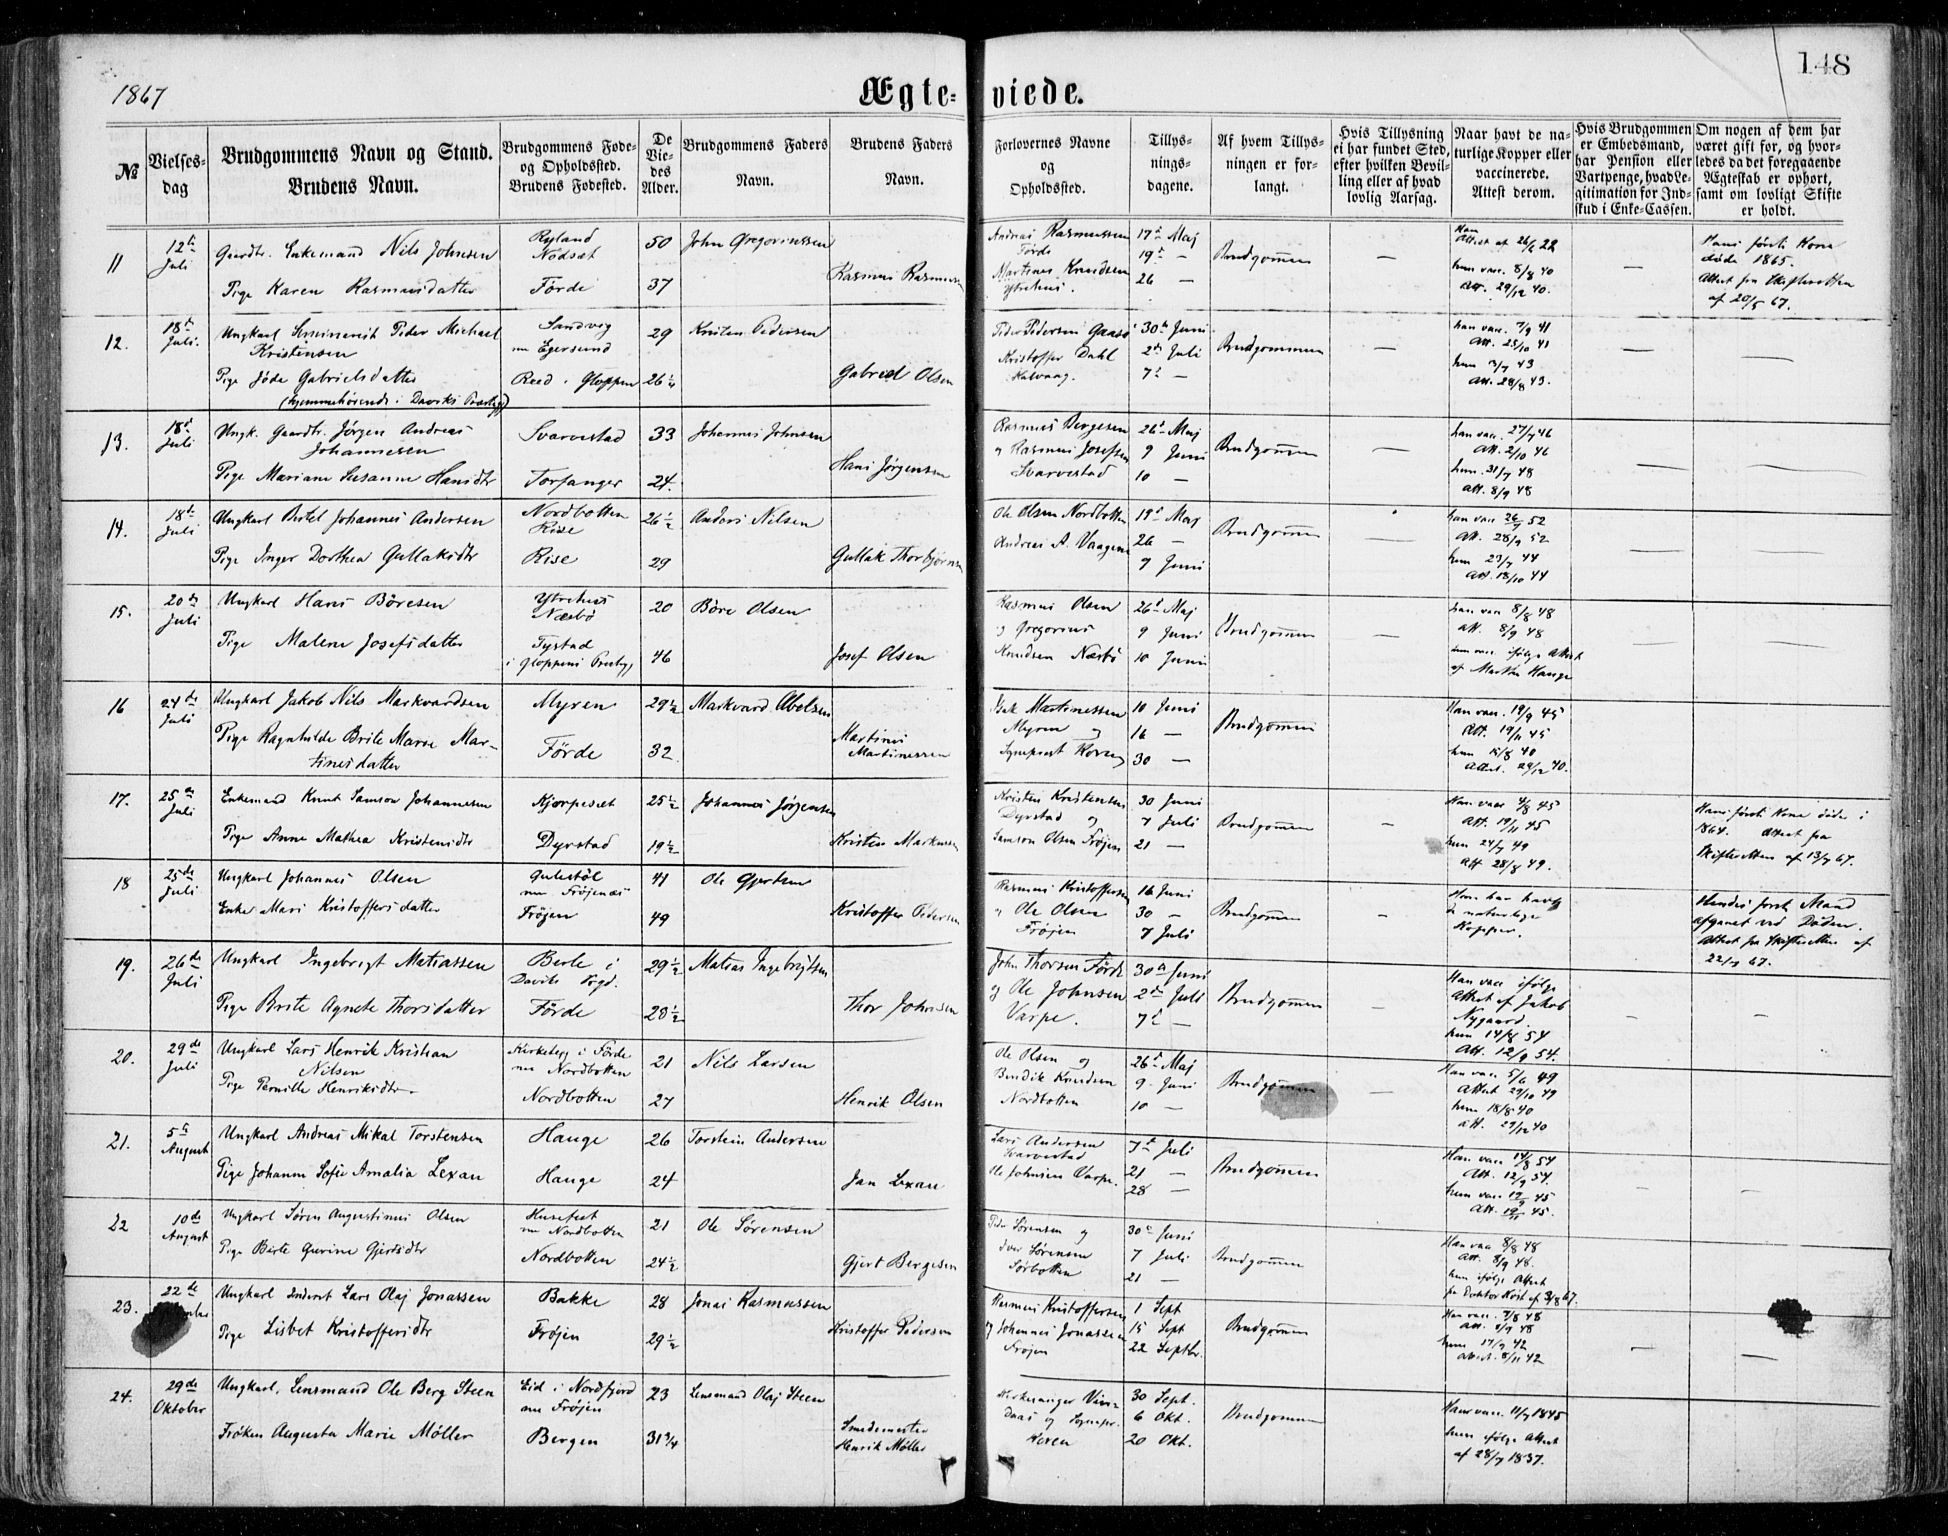 1867
Ægte-viede.
148
№
Vielses-dag
Brudgommens Navn og Stand.
Brudens Navn.
Brudgommens Føde- og Opholdssted.
Brudens Fødested.
De Vie-des Alder.
Brudgommens Faders Navn.
Brudens Faders Navn.
Forlovernes Navne og Opholdssted.
Tillys-nings-dagene.
Af hvem Tillys-ningen er for-langt.
Hvis Tillysning ei har fundet Sted, efter hvilken Bevil-ling eller af hvad lovlig Aarsag.
Naar havt de na-turlige Kopper eller vaccinerede. Attest derom.
Hvis Brudgommen er Embedsmand, har Pension eller Vartpenge, hvad Le-gitimation for Ind-skud i Enke-Cassen.
Om nogen af dem har været gift før, og hvor-ledes da det foregaaende Ægteskab er ophørt, samt om lovligt Skifte er holdt.
11 12te Juli Gaardbr. Enkemand Nils Johnsen Ryland Nødsæt 50 John Gregoriussen
Pige Karen Rasmusdatter Förde 37 Rasmus Rasmussen
Andreas Rasmussen Förde Martinus Knudsen Ytrehus 17de Maj 19de — 26 — Brudgommen —
Han Attest af 26/6 22 hun vacc. 8/8 40 Att. 29/12 40. —
Hans første Kone døde 1865. Attest fra Skifteretten af 20/5 67.
12. 18de Juli. Ungkarl Seminarist Peder Michael Kristensen Sandvig nu Egersund 29 Kristen Pedersen
Pige Jöda Gabrielsdatter (hjemmehørende i Daviks Præstegj) Reed i Gloppen 26 1/4 Gabriel Olsen
Peder Pedersen Gaasö Kristoffer Dahl Kalvaag. 30te Juni 2den Juli 7de — Brudgommen —
han vacc. 7/9 41 Att. 25/10 41 hun 13/7 43 Att. 28/8 43. — —
13. 18de Juli Ungk. Gaardbr. Jörgen Andreas Johannesen Svarvestad 33 Johannes Johnsen
Pige Mariane Susanne Hansdtr Torfanger 24. Hans Jörgensen
Rasmus Börgesen og Rasmus Josefsen Svarvestad 26de Maj 9 Juni 10 — Brudgommen —
han vacc. 27/7 46 Att. 2/10 46 hun 31/7 48 Att. 8/9 48 — —
14. 18de Juli Ungkarl Bertel Johannes Andersen Nordbotten Rise 26 1/2 Anders Nilsen
Pige Inger Dorthea Gullaksdtr Rise 29 Gullak Thorbjörnsen
Ole Olsen Nordbotten Andreas A. Vaagene 19de Maj 26 — 9 Juni Brudgommen —
han vacc. 26/7 52 Att. 28/9 52 hun 23/7 44 Att. 18/10 44 — —
15. 20de Juli Ungkarl Hans Böresen Ytrehus Næsbö 20 Böre Olsen
Pige Malene Josefsdatter Tystad i Gloppens Præstegj 46 Josef Olsen
Rasmus Olsen og Gregorius Knudsen Næsbö 26de Maj 9 Juni 10 Juni Brudgommen —
han vacc 8/8 48 Att. 8/9 48 hun vacc. ifølge Attest af Martin Hauge
16 24de Juli Ungkarl Jakob Nils Markvardsen Myren 29 1/2 Markvard Abelsen
Pige Ragnhilde Brite Marie Martinesdatter Förde 32 Martinus Martinussen
Isak Martinussen Myren og 10 Juni 16 — 30 — Brudgommen
Han vacc. 19/9 45 Att. 19/11 45 hun 15/8 40 Attest. 29/12 40.
17. 25de Juli Enkemand Knut Samson Johannesen Kjørpesæt 25 1/2 Johannes Jørgensen
Pige Anne Mathea Kristensdtr Dyrstad 19 1/2 Kristen Markussen
Kristen Kristensen Dyrstad og Samson Olsen Fröjen 30 Juni 7 Juli 21 — Brudgommen —
Han vacc 4/8 45 Att. 19/11 45 hun 24/7 49 Att 28/8 49.
Hans første Kone døde i 1864. Attest fra Skifteretten af 13/7 67.
18 25de Juli Ungkarl Johannes Olsen Gulestöl nu Fröjenæs 41 Ole Gjertsen
Enke Mari Kristoffersdatter Fröjen 49 Kristoffer Pedersen
Rasmus Kristoffersen og Ole Olsen Fröjen 16 Juni 30 — 7 Juli Brudgommen —
Hun har havt de naturlige Kopper.
Hendes forst. Mand afgaaet ved Døden. Attest fra Skifteretten af 22/7 67.
19. 26de Juli Ungkarl Ingebrigt Matiassen Berle i Daviks Prgd. 29 1/2 Matias Ingebrigtsen
Pige Brite Agnete Thorsdatter Förde 28 1/2 Thor Johnsen
John Thorsen Förde og Ole Johnsen Varpe. 30te Juni 2den Juli 7de — Brudgommen —
Han vacc ifølge Attest af Jakob Nygaard. hun 14/8 54 Att. 12/9 54. — —
20. 29de Juli Ungkarl Lars Henrik Kristian Nilsen Kirkebyg i Förde nu Nordbotten 21 Nils Larsen
Pige Pernille Henriksdtr Nordbotten 27 Henrik Olsen
Ole Olsen og Bendik Knudsen Nordbotten 26de Maj 9 Juni 10 — Brudgommen —
Han vacc 5/6 49 Attest 29/10 49 hun 18/8 40 Att. 29/12 40
21. 5te August Ungkarl Andreas Mikal Torstensen Hauge 26 Torstein Andersen
Pige Johanne Sofie Amalia Lexau Hauge 24 Jan Lexau
Lars Andersen Svarvestad Ole Johnsen Varpe. 7de Juli 21 — 28 — Brudgommen
Han vacc 14/8 54 Att. 12/9 54. hun vacc 19/9 45 Att. 19/11 45. — —
22 10de August Ungkarl Sören Augustinus Olsen Husefest nu Nordbotten 21 Ole Sörensen
Pige Berte Gurine Gjertsdtr Nordbotten 24 1/2 Gjert Bergesen
Peder Sörensen og Iver Sörensen Sörbotten 30te Juni 7 Juli 21 — Brudgommen
Han vacc 8/8 48 Att. 8/9 48. hun ifølge Attest fra Doktor Kost af 3/8 67.
23. 22de Ungkarl Inderst Lars Olaj Jonassen Bakke 28 Jonas Rasmussen
Pige Lisbet Kristoffersdtr Fröjen 29 1/2 Kristoffer Pedersen
Rasmus Kristoffersen og Johannes Jonassen Fröjen 1 Sept 15 Sept 22 Septbr. Brudgommen
Han vacc. 7/8 48 Att. 8/9 48 hun 17/9 42 Attest. 8/11 42 — —
24. 29de Oktober Ungkarl, Lensmand Ole Berg Steen Eid i Nordfjord nu Fröjen 23 Lensmand Olaj Steen
Fröken Augusta Marie Möller Bergen 31 3/4 Smedemester Henrik Möller
30 Sept. 6 Okt. 20 Okt. Brudgommen
Han vacc. 11/7 1845 hun ifølge Attest af 28/7 1837.